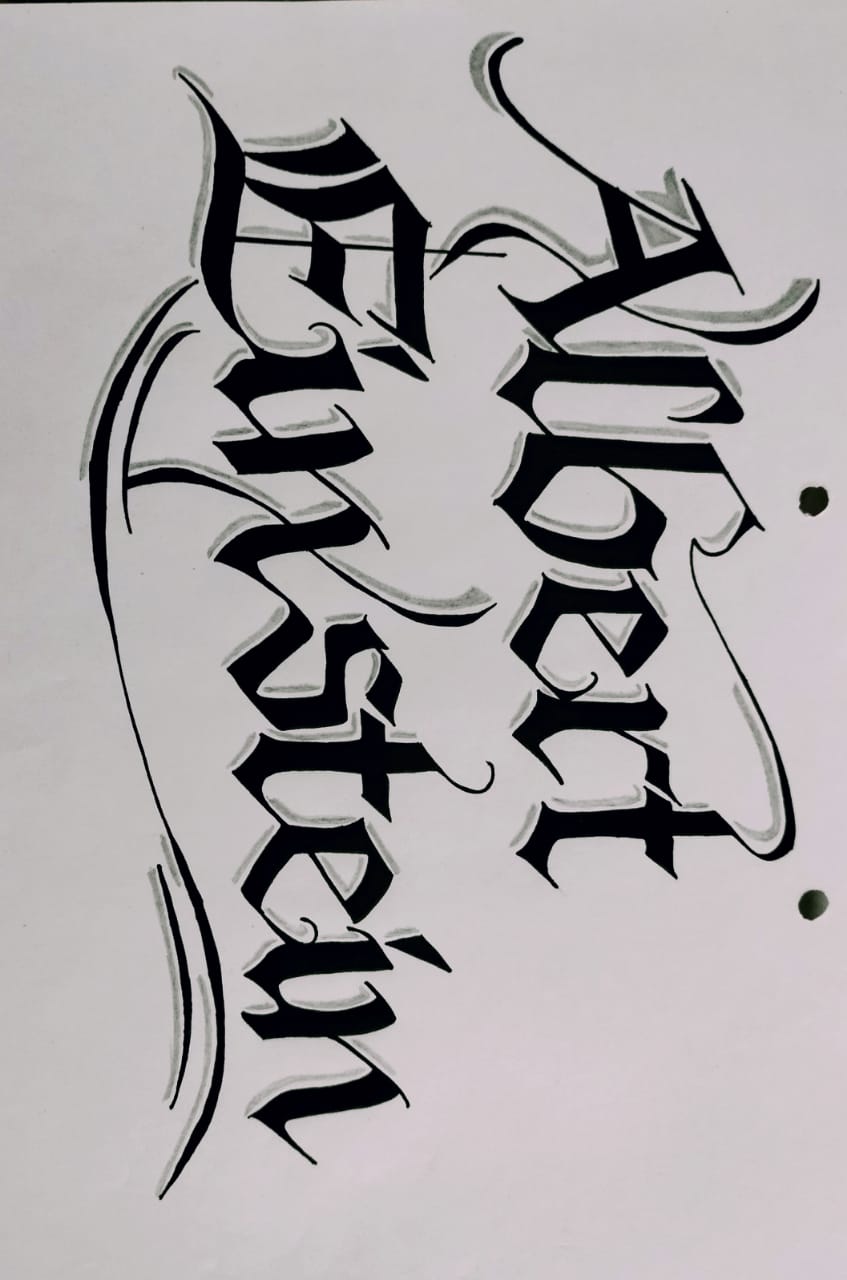 Albert
Einstein